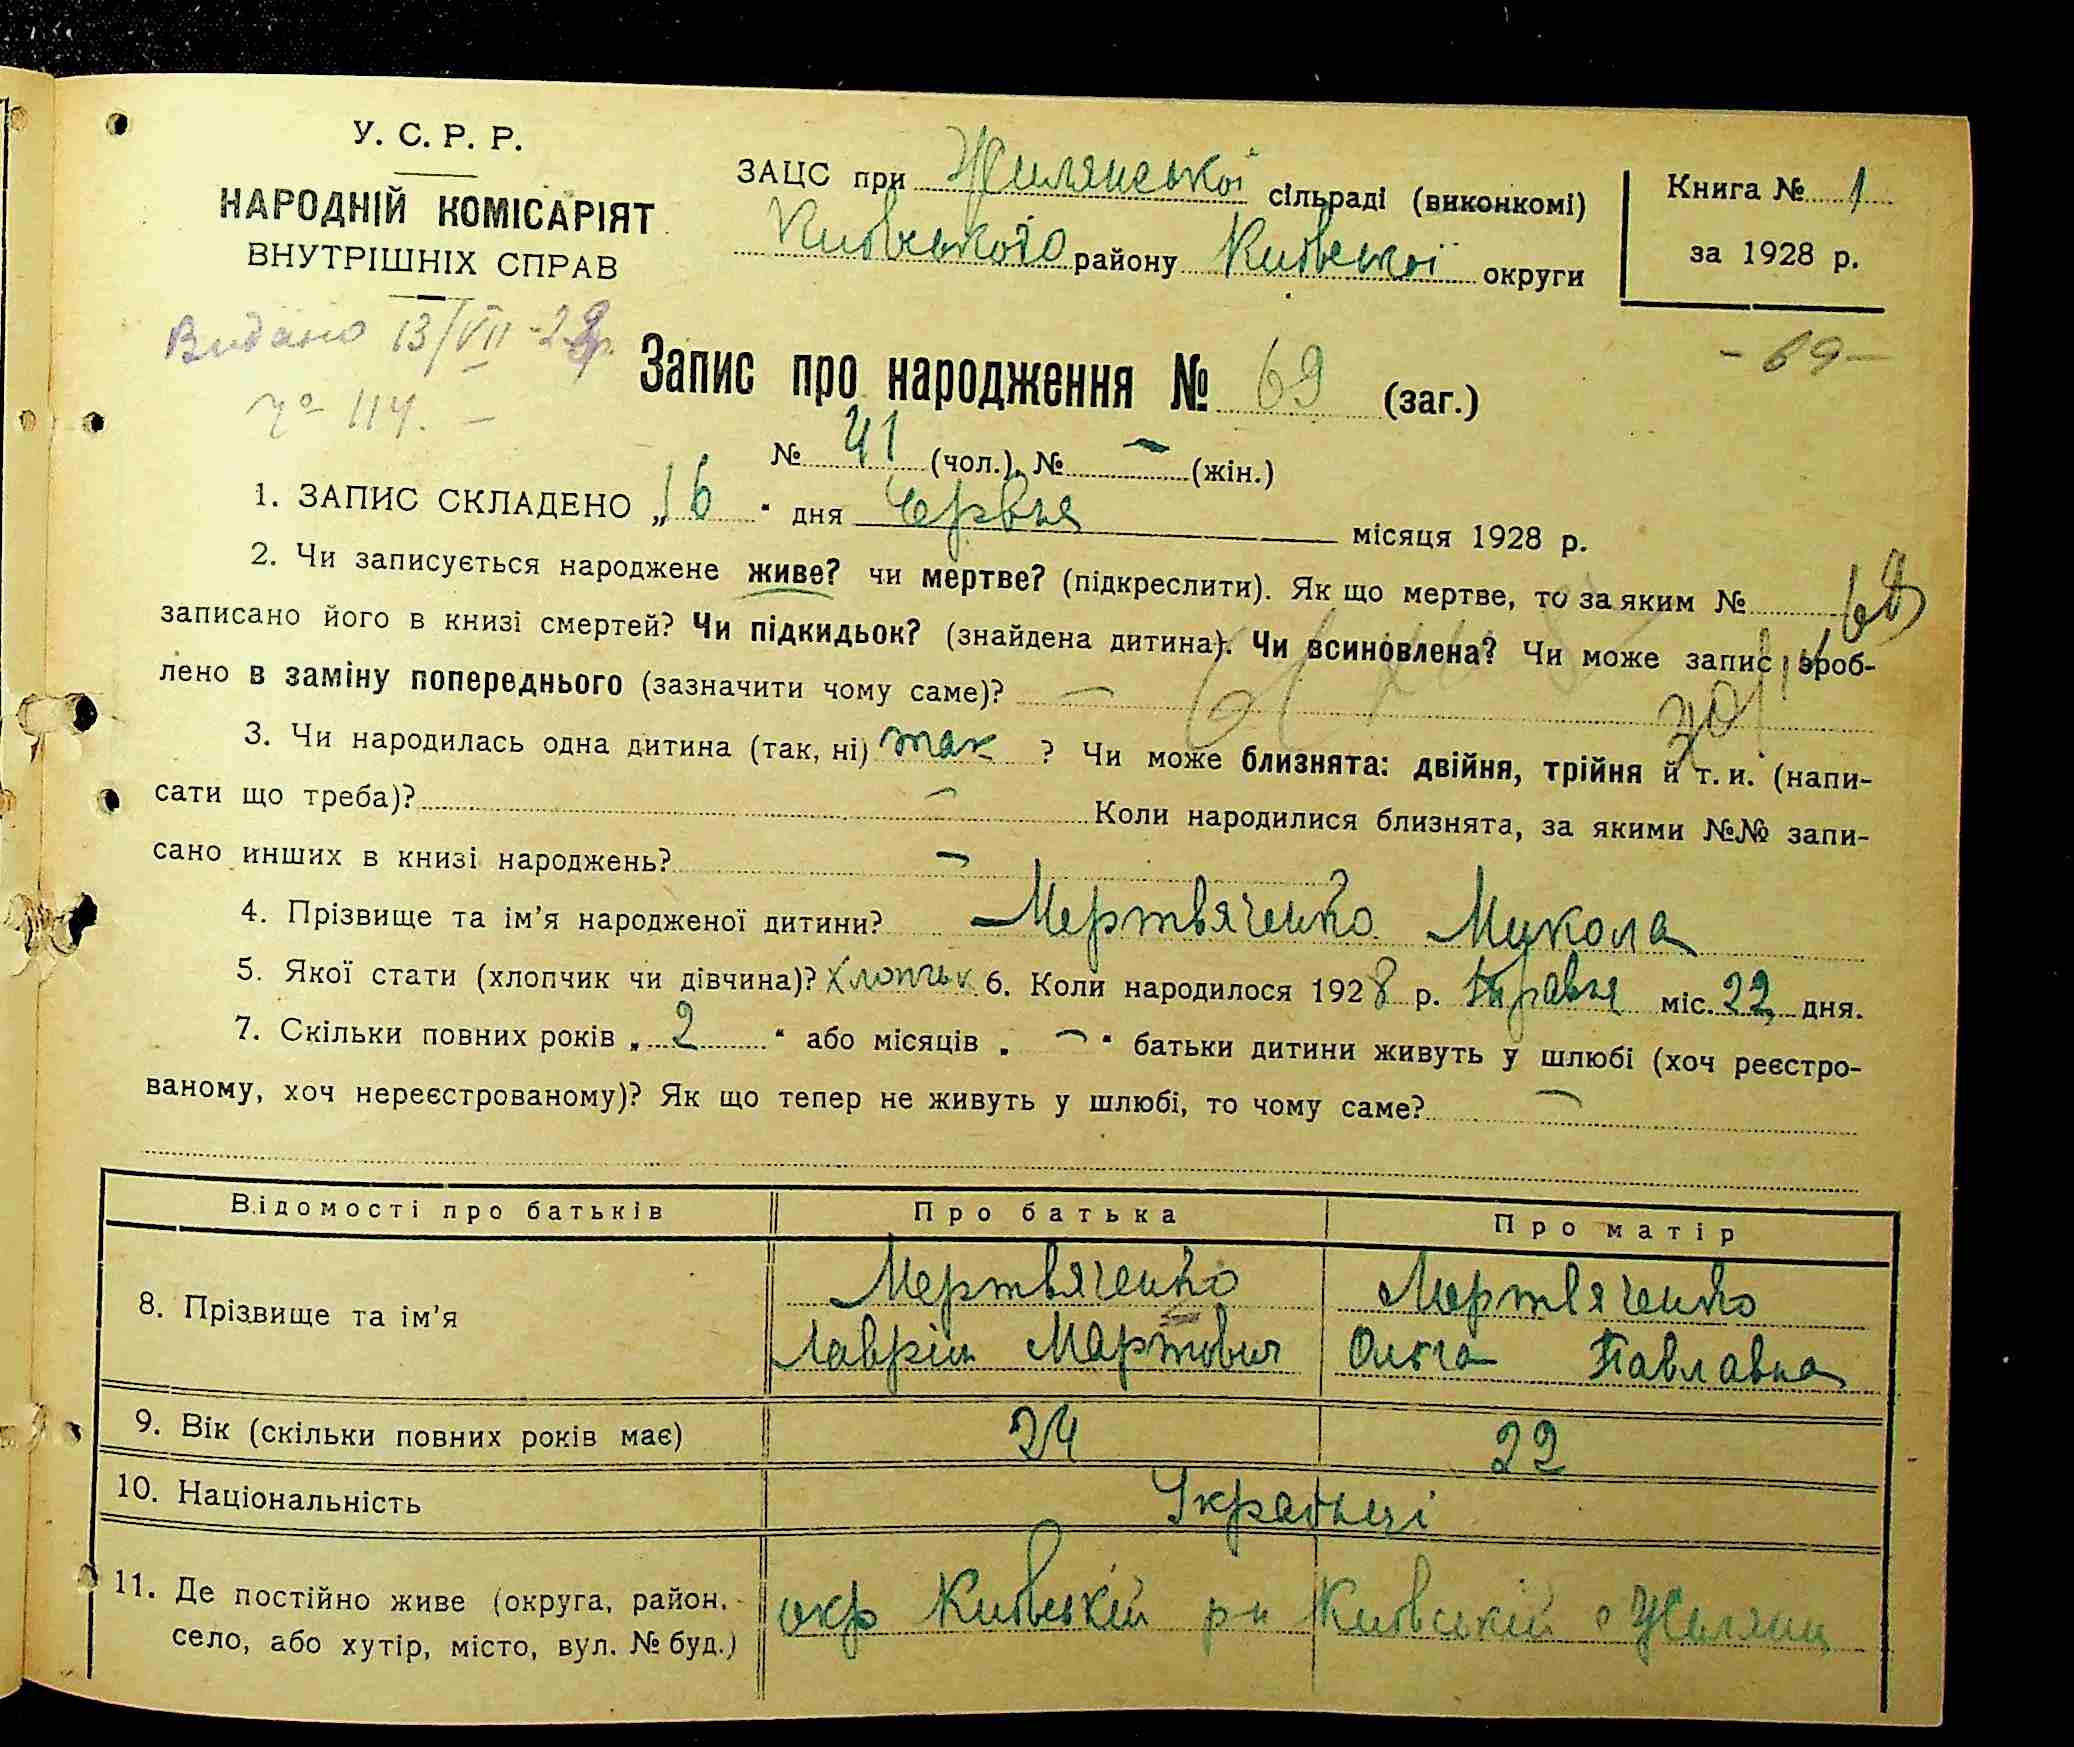 У. С. Р. Р.
НАРОДНІЙ КОМІСАРІЯТ
ВНУТРІШНІХ СПРАВ
ЗАЦС при Жилянської сільраді (виконкомі)
Київського району Київської округи
Книга № 1
за 1928 р.
Видано 13/VII-29р.
№ 114. –
- 69 -
Запис про народження № 69 (заг.)
№ 41 (чол.), № – (жін.)
1. ЗАПИС СКЛАДЕНО „16“ дня Червня місяця 1928 р.
2. Чи записується народжене живе? чи мертве? (підкреслити). Як що мертве, то за яким №
записано його в книзі смертей? Чи підкидьок? (знайдена дитина). Чи всиновлена? Чи може запис зроб-
лено в заміну попереднього (зазначити чому саме)? –
3. Чи народилась одна дитина (так, ні) так ? Чи може близнята: двійня, трійня й т. и. (напи-
сати що треба)? – Коли народилися близнята, за якими №№ запи-
сано инших в книзі народжень? –
4. Прізвище та ім'я народженої дитини? Мертвяченко Микола
5. Якої стати (хлопчик чи дівчина)? Хлопчик 6. Коли народилося 1928 р. Травня міс. 22 дня.
7. Скільки повних років „2“ або місяців „–“ батьки дитини живуть у шлюбі (хоч реєстро-
ваному, хоч нереєстрованому)? Як що тепер не живуть у шлюбі, то чому саме? –
Відомості про батьків Про батька Про матір
8. Прізвище та ім'я
Мертвяченко Мертвяченко
Лаврін Мартович Ольга Павлавна
9. Вік (скільки повних років має) 24 22
10. Національність Українці
11. Де постійно живе (округа, район,
село, або хутір, місто, вул. № буд.)
окр Київській р-н Київській с Жиляни